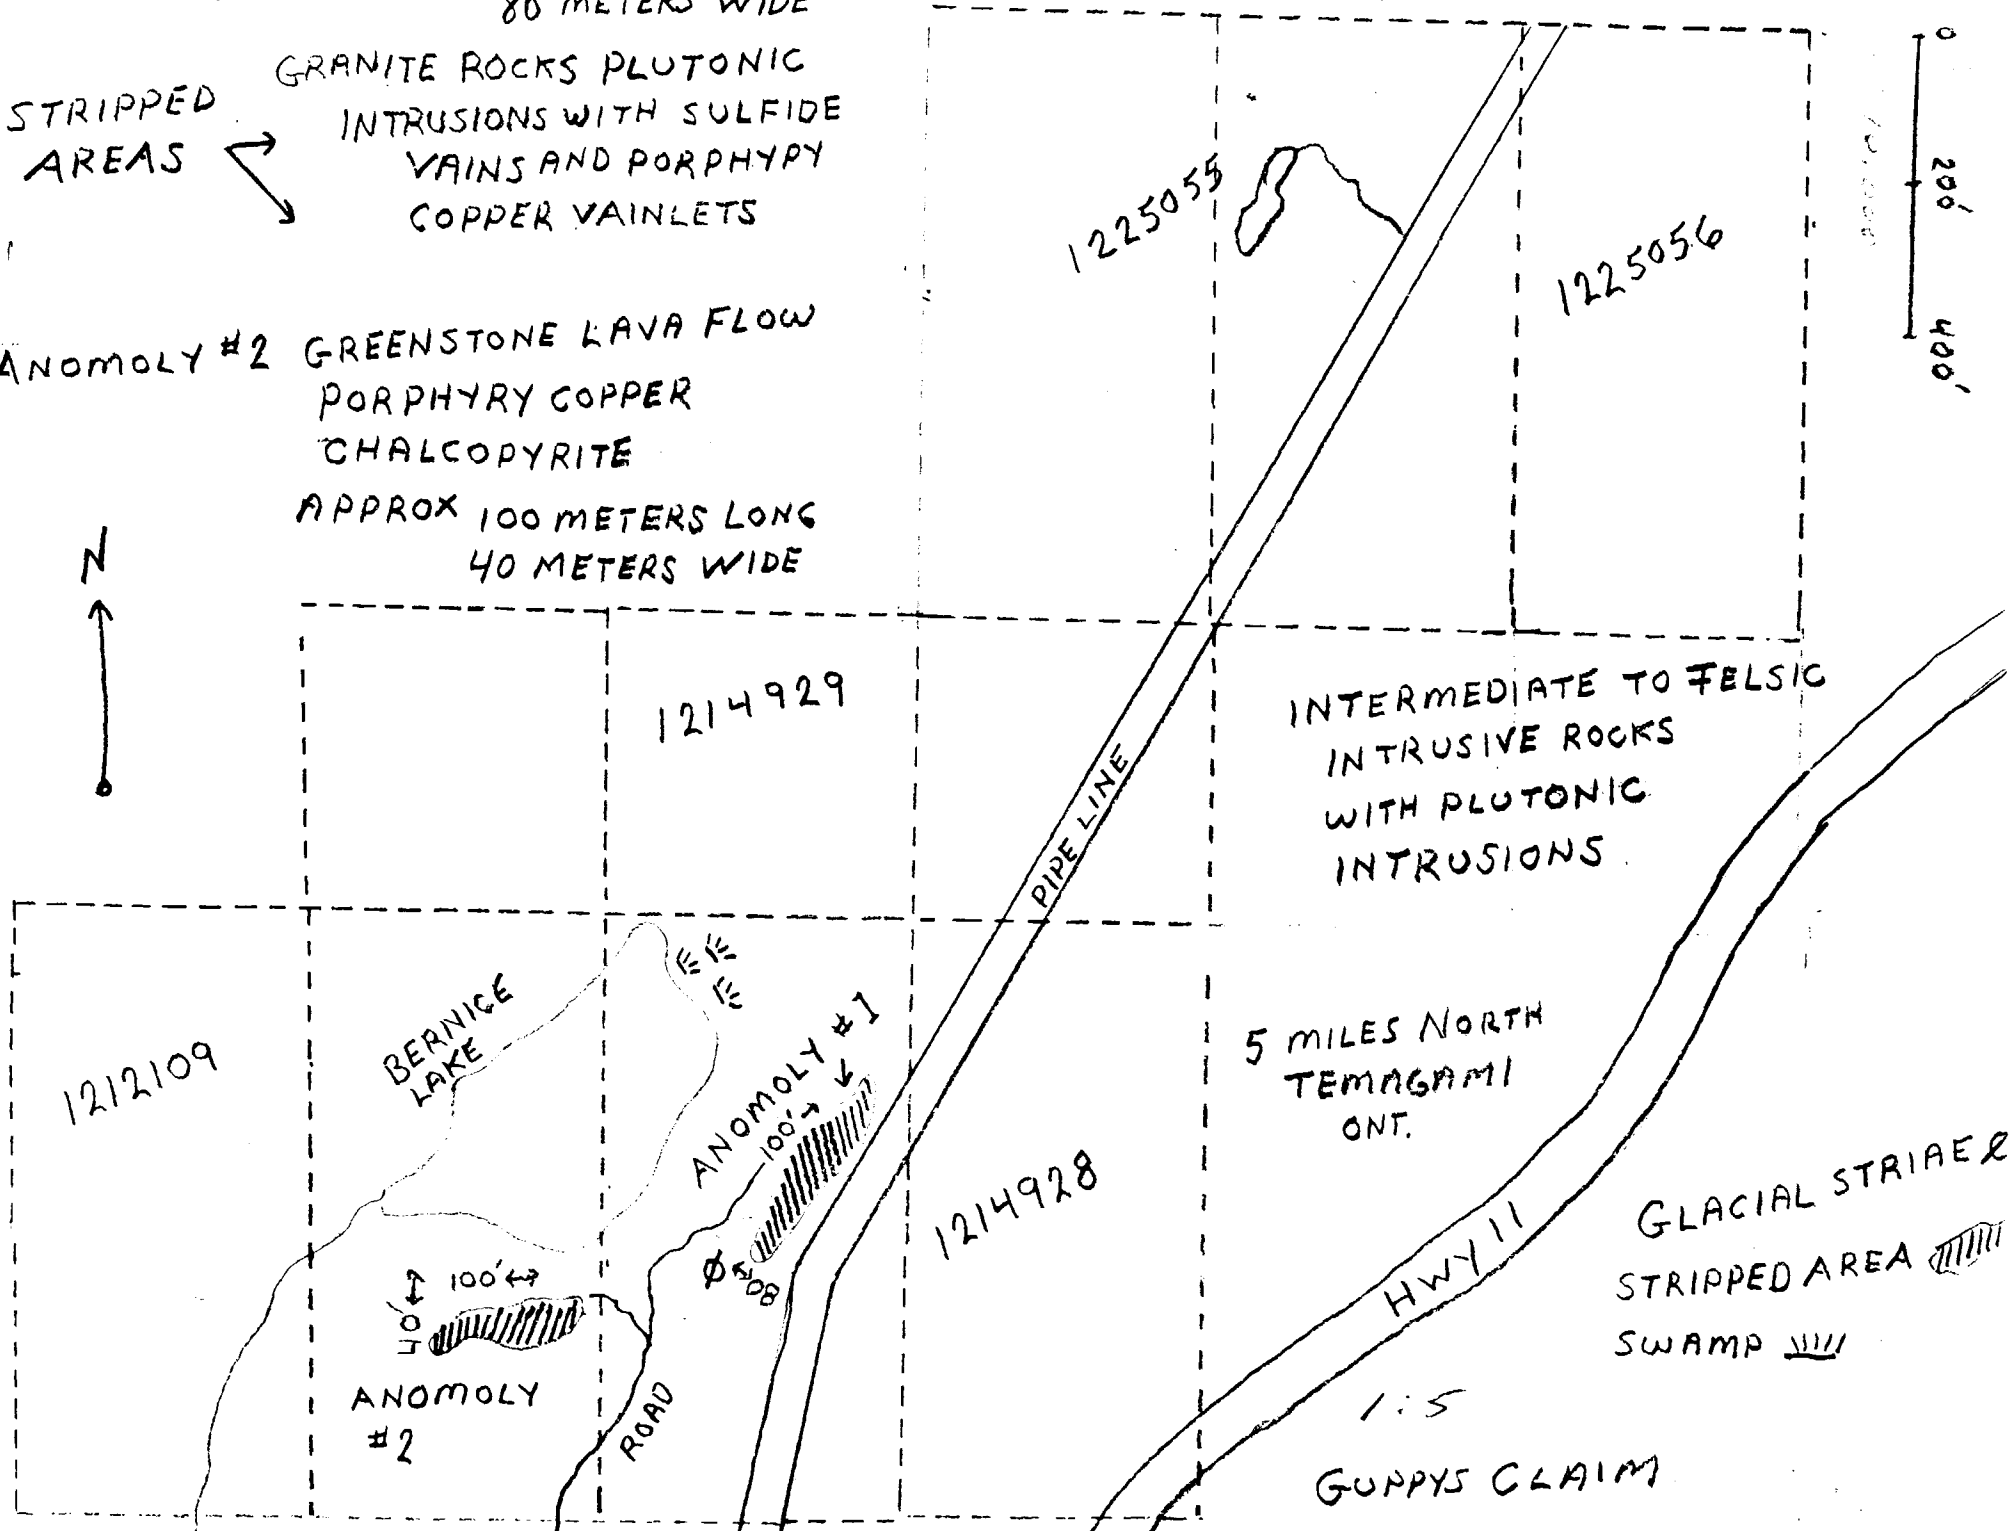 80 METERS WIDE
GRANITE ROCKS PLUTONIC
INTRUSIONS WITH SULFIDE
VAINS AND PORPHYPY
COPPER VAINLETS
STRIPPED
AREAS
ANOMOLY #2 GREENSTONE LAVA FLOW
PORPHYRY COPPER
CHALCOPYRITE
APPROX 100 METERS LONG
40 METERS WIDE
N
1225055
1225056
0
200'
400'
1214929
PIPE LINE
INTERMEDIATE TO FELSIC
INTRUSIVE ROCKS
WITH PLUTONIC
INTRUSIONS
1212109
BERNICE
LAKE
ANOMOLY #1
100'
80'
1214928
5 MILES NORTH
TEMAGAMI
ONT.
100'
40'
ANOMOLY
#2
ROAD
HWY 11
GLACIAL STRIAE
STRIPPED AREA
SWAMP
1:5
GUPPYS CLAIM